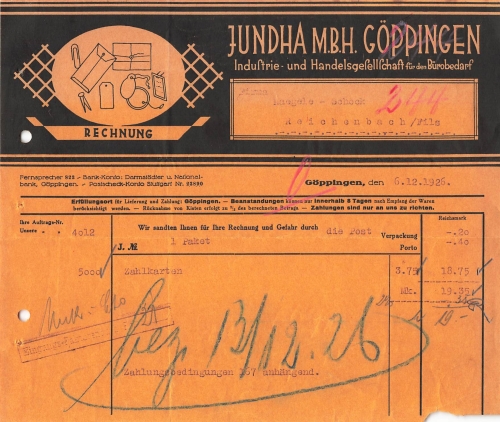 JUNDHA M.B.H. GÖPPINGEN
Industrie- und Handelsgesellschaft für den Bürobedarf
RECHNUNG
Firma
344
Reichenbach/Fils
Fernsprecher 932 - Bank-Konto: Darmstädter u. National-
bank, Göppingen. - Postscheck-Konto Stuttgart Nr.
Göppingen, den 6.12.1926.
Erfüllungsort für Lieferung und Zahlung: Göppingen. - Beanstandungen können nur innerhalb 8 Tagen nach Empfang der Waren
berücksichtigt werden. - Rücknahme von Kisten erfolgt zu ⅔ des berechneten Betrags - Zahlungen sind nur an uns zu richten.
Ihre Auftrags-Nr.
Unsere " 4012
Wir sandten Ihnen für Ihre Rechnung und Gefahr durch die Post
1 Paket
Verpackung
Porto
Reichsmark
-.20
-.40
J. №
5000 Zahlkarten 3.75 18.75
Mk. 19.35
bez. 13/12.26
Zahlungsbedingungen 167 anhängend.